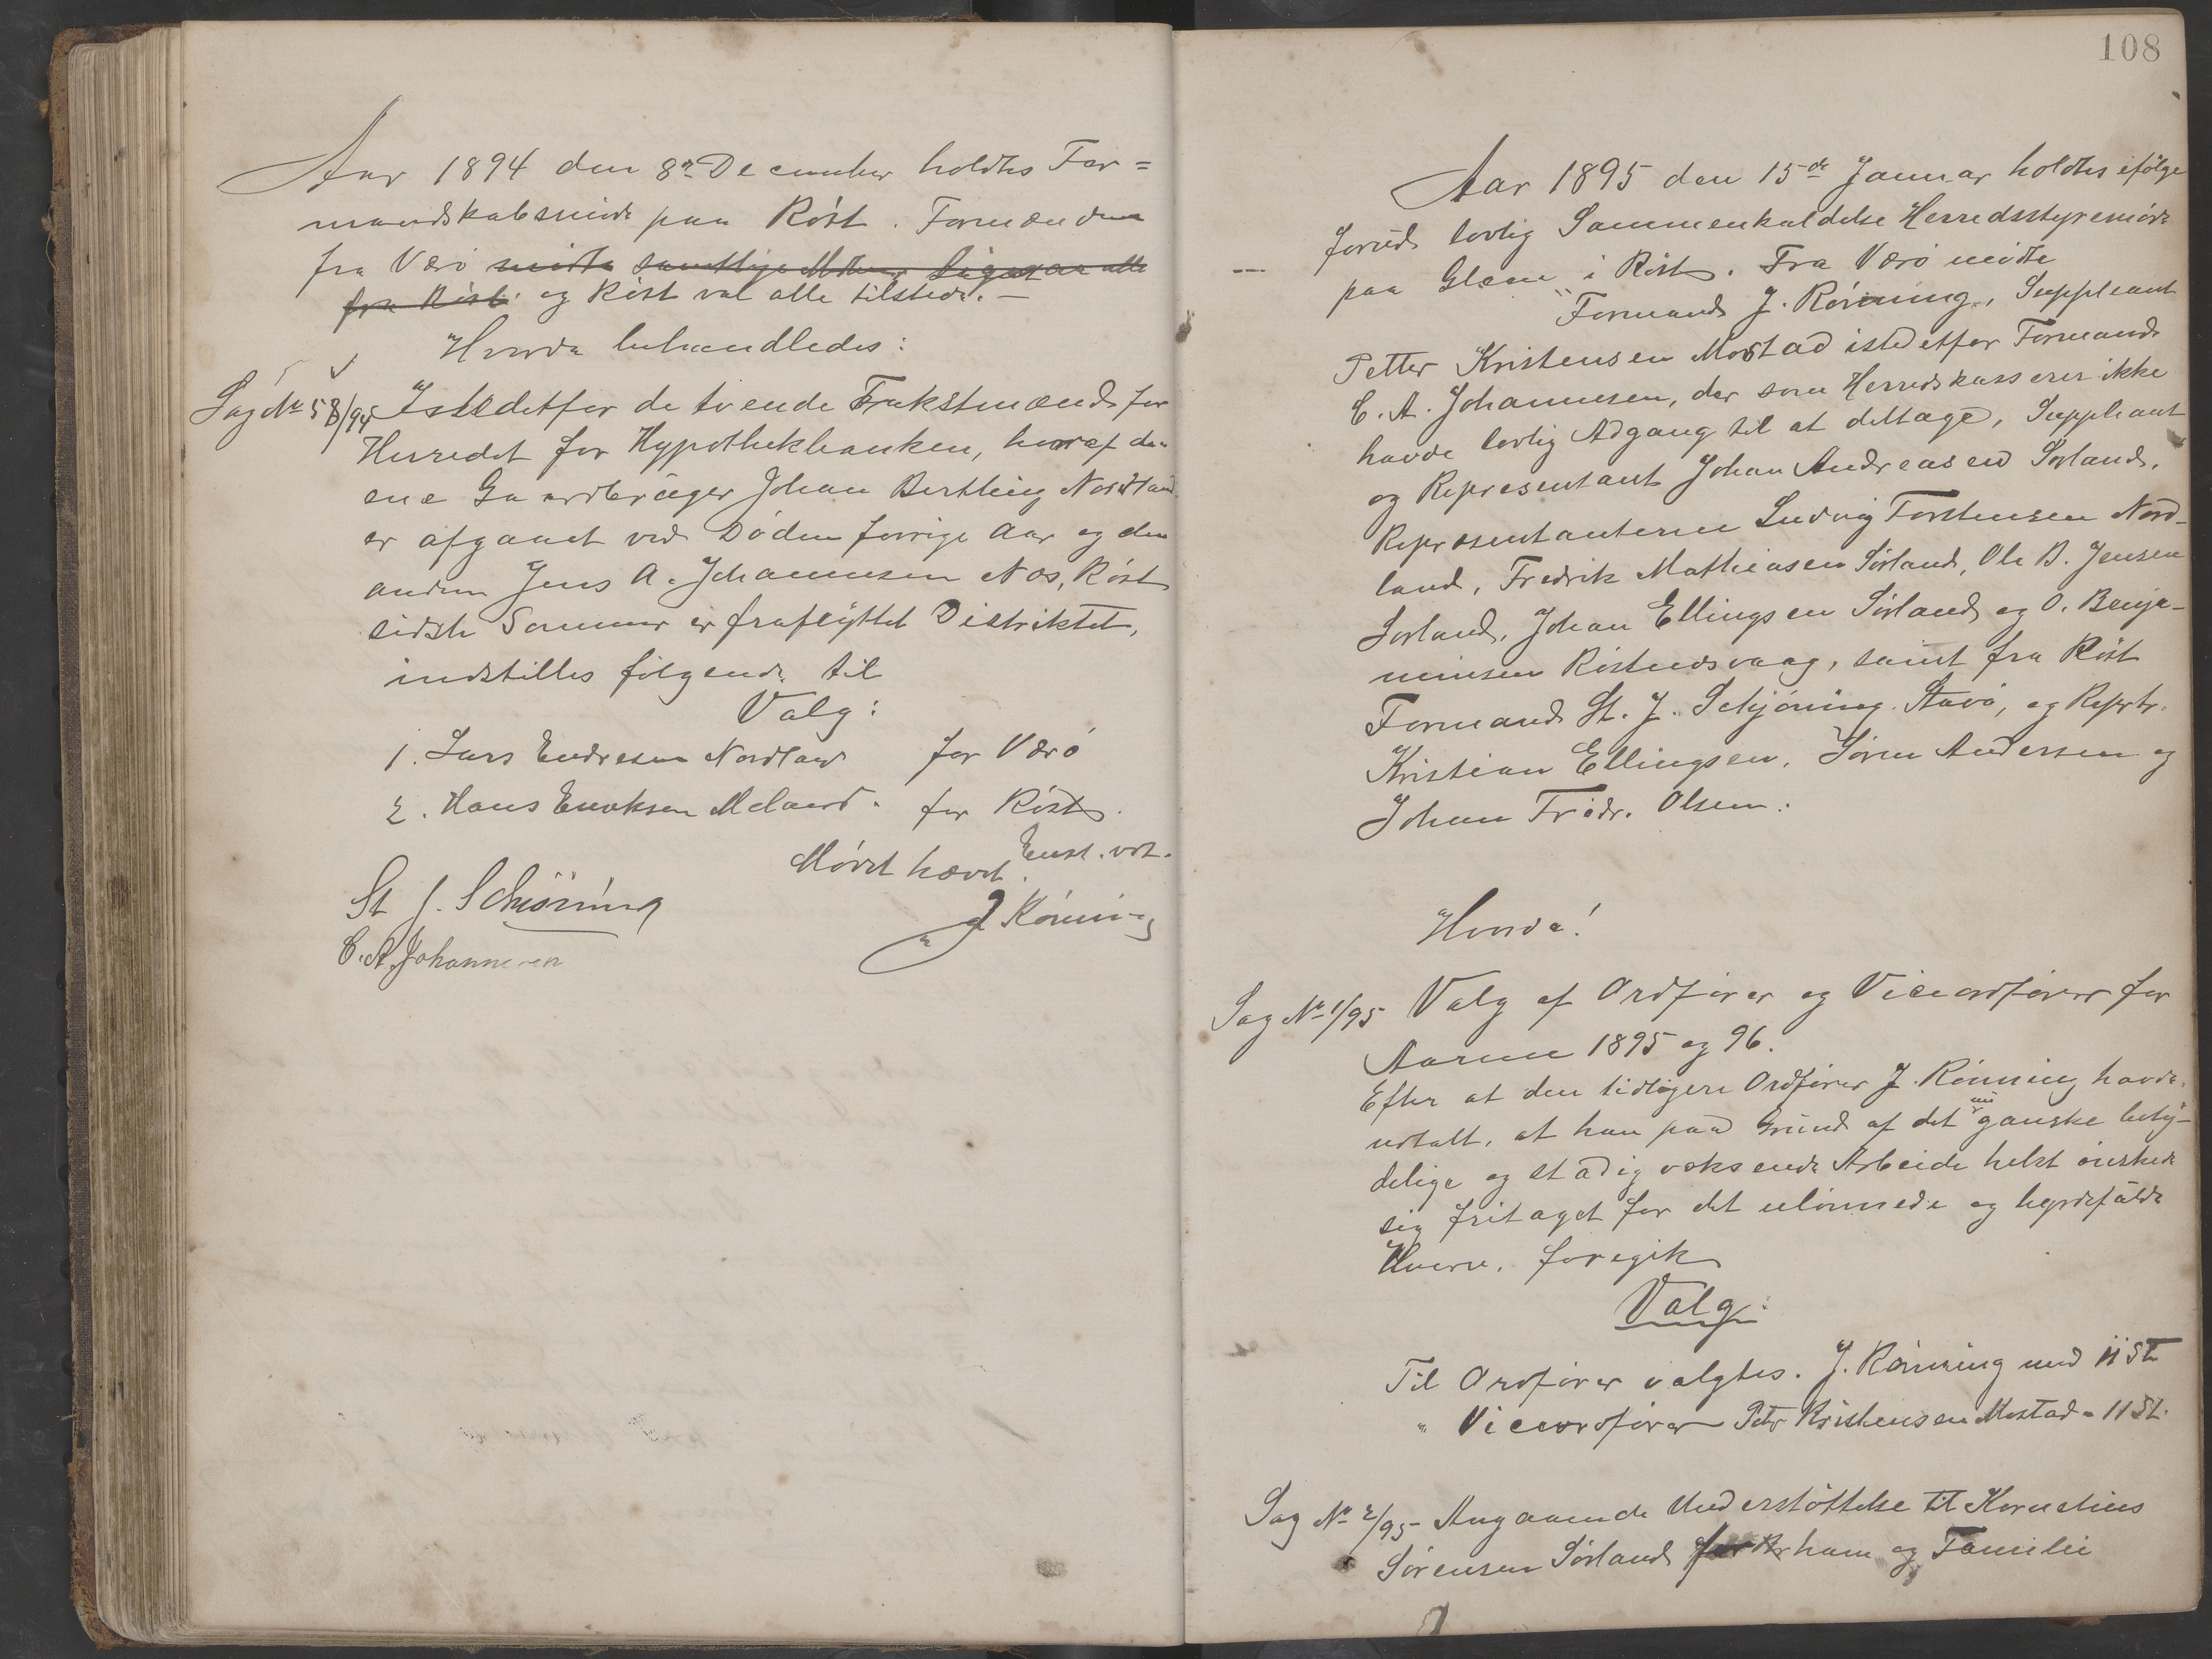 Aar 1894 den 8de December holdtes For=
mandskabsmöde paa Röst. Formændene
fra Værö mödte samtlige
fra Röst. og Röst val alle tilstede. —
Hvorda behandledes:
Sag No 58/94 Istedetfor de tvende Takstmænd for
Herredet for Hypothekbanken, hvoraf den
ene Gaardbruger Johan Berthing Nordland
er afgaaet ved Döden forrige Aar og den
anden Jens A. Johannesen Næs, Röst
sidste Sommer er fraflyttet Distriktet,
indstilles fölgende til
Valg:
1. Lars Endresen Nordland for Værö
2. Hans Enoksen Meland. for Röst.
Enst. vdt.
Mödet hævet.
St J. Schiöning
J Rönning
C. A. Johannesen
108
Aar 1895 den 15de Januar holdtes ifölge
forud lovlig Sammenkaldelse Herredsstyremöde
paa Glaen i Röst. Fra Værö mödte
Formand J. Rönning, Suppleant
Petter Kristensen Mostad istedetfor Formand
C. A. Johannesen, der som Herredskasserer ikke
havde lovlig Adgang til at deltage, Suppleant
og Repræsentant Johan Andreasen Sörland,
Repræsentanterne Ludvig Torstensen Nord-
land, Fredrik Mathiasen Sörland, Ole B. Jensen
Sorland, Johan Ellingsen Sörland og O. Benja-
minsen Röstnesvaag, samt fra Röst
Formand St. J. Schjöning Stavö, og Reprtr.
Kristian Ellingsen, Sören Andersen og
Johan Fredr. Olsen.
Hvorda!
Sag No 1/95 Valg af Ordförer og Viceordförer for
Aarene 1895 og 96.
Efter at den tidligere Ordförer J. Rönning havde
udtalt, at han paa Grund af det nu ganske bety-
delige og stadig voksende Arbeide helst önskede
sig fritaget for det ulönnede og byrdefulde
Hverv, foregik
Valg:
Til Ordförer valgtes. J. Rönning med 11 St
" Viceordförer Petr Kristensen Mostad " 11 St.
Sag No 2/95 Angaaende Understöttelse til Kornelius
Sörensen Sörland ham og Familie